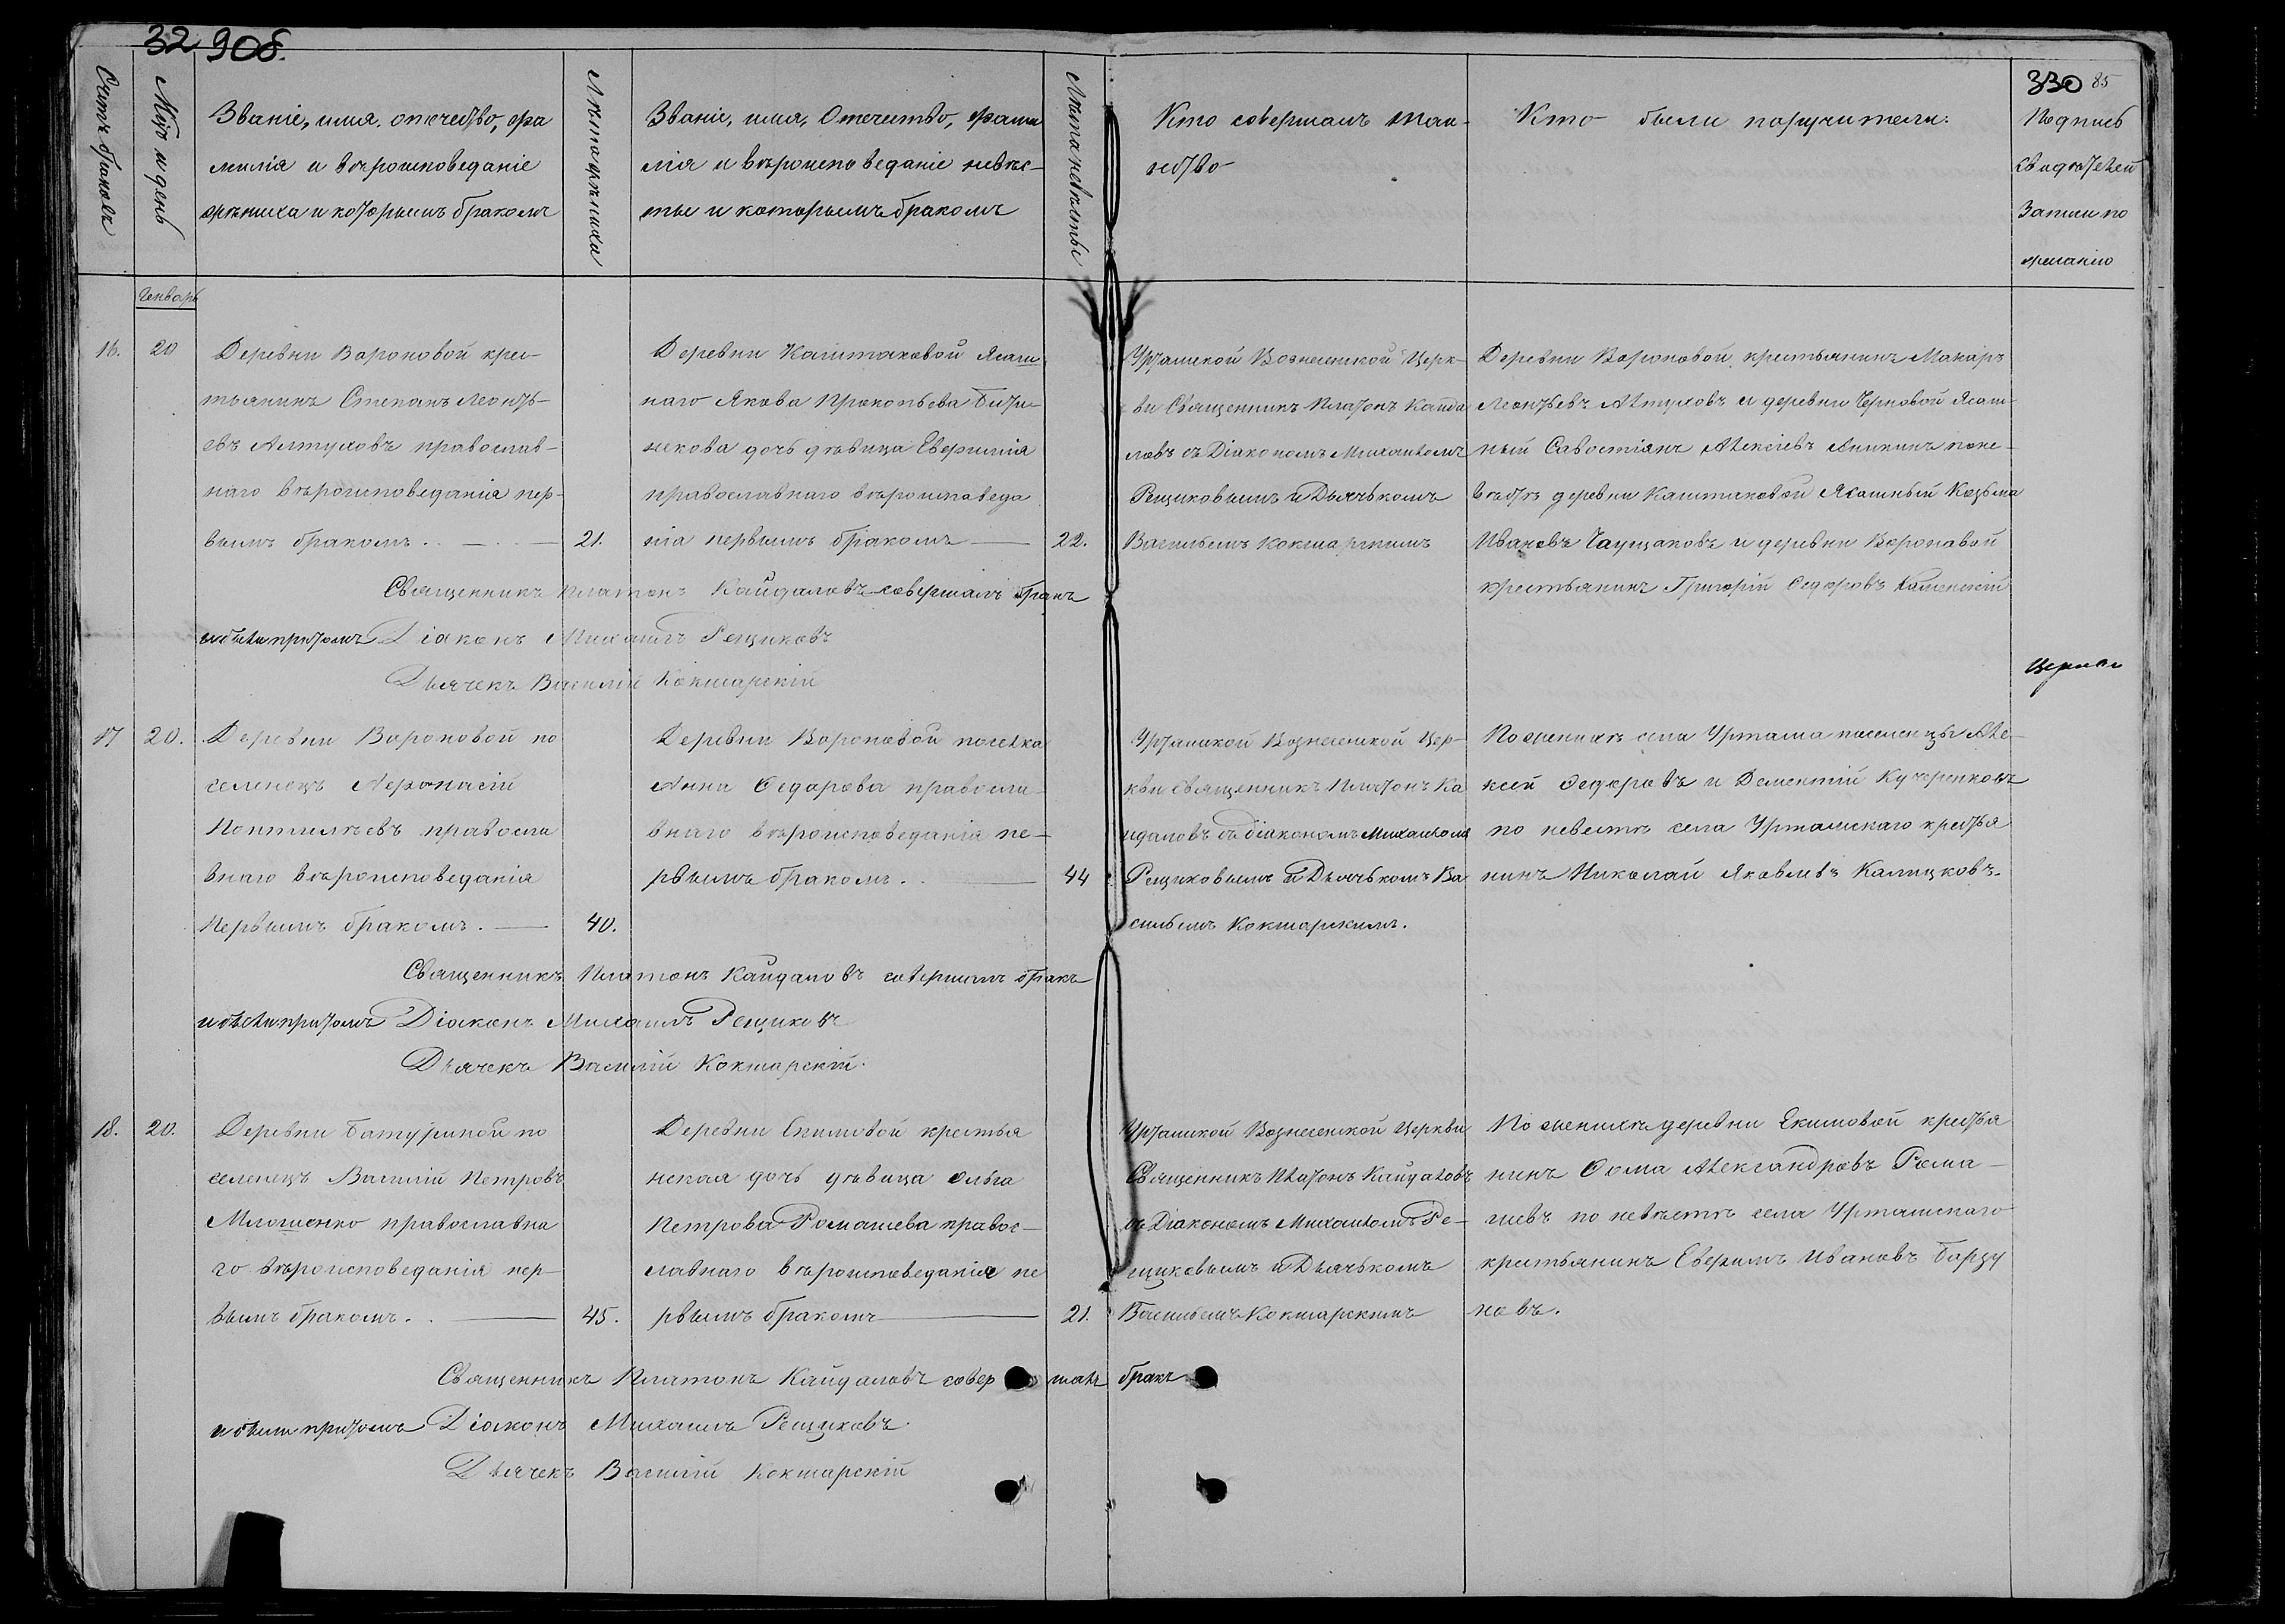 32 9об.
330 85
Счетъ браковъ
Мцъ и день
Званіе, имя, отечество, фа
милія и вѣроисповеданіе
жениха и которымъ бракомъ
Лѣта жениха
Званіе, имя, Отечество, фами
лія и вѣроисповеданіе невѣс-
ты и которымъ бракомъ
Лѣта невѣсты
Кто совершалъ таи-
нство
Кто были поручители.
Подпись
свидѣтелей
Записи по
желанію
Генварь
16.
20
Деревни Вороновой крес-
тьянинъ Степанъ Леонть-
евъ Алтуховъ православ-
наго вѣроисповеданія пер-
вымъ бракомъ.
21.
Деревни Каштаковой Ясаш
наго Якова Прокопьева
дочь дѣвица Евфимія
православнаго вѣроисповеда
нія первымъ бракомъ
22.
Уртамской Вознесенской Церк-
ви Священникъ Платонъ Кайда
ловъ съ Діакономъ Михаиломъ
Рещиковымъ и Дьячькомъ
Васильемъ Кокшарскимъ
Деревни Вороновой крестьянинъ Макаръ
Леонтьевъ Алтуховъ и деревни Черновой Ясаш-
ный Савостіянъ Алексіевъ Аникинъ по не-
вѣстѣ деревни Каштаковой Ясашный Козьма
Ивановъ и деревни Вороновой
крестьянинъ Григорій Федоровъ Каменскій
Священникъ Платонъ Кайдаловъ совершалъ бракъ
Діаконъ Михаилъ Рещиковъ
Дьячекъ Василій Кокшарскій
17
20.
Деревни Вороновой по
селенецъ Афонасій
Понтилѣевъ правосла
внаго вѣроисповеданія
Первымъ бракомъ.
40.
Деревни Вороновой поселка
Анна Федорова правосла
внаго вѣроисповеданія пе-
рвымъ бракомъ.
44
Уртамской Вознесенской Цер-
кви Священникъ Платонъ Ка
идаловъ съ Діакономъ Михаиломъ
Рещиковымъ и Дьячькомъ Ва
сильемъ Кокшарскимъ.
По женихѣ села Уртама поселенцы Але-
ксей Федоровъ и Дементій Кучеренковъ
по невестѣ села Уртамскаго крестья
нинъ Николай Яковлевъ
Священникъ Платонъ Кайдаловъ совершалъ бракъ
Діаконъ Михаилъ Рещиковъ
Дьячекъ Василій Кокшарскій.
18.
20.
Деревни Батуриной по
селенецъ Василій Петровъ
православна
го вѣроисповеданія пер-
вымъ бракомъ.
45.
Деревни Екимовой крестья
нская дочь дѣвица Ольга
Петрова Ромашева правос-
лавнаго вѣроисповеданія пе
рвымъ бракомъ
21.
Уртамской Вознесенской Церкви
Священникъ Платонъ Кайдаловъ
съ Діакономъ Михаиломъ Ре-
щиковымъ и Дьячькомъ
Васильемъ Кокшарскимъ
По женихѣ деревни Екимовой крестья
нинъ Фома Александровъ Рома-
шевъ по невѣстѣ села Уртамскаго
крестьянинъ Евфимъ Ивановъ Барзу
новъ.
Священникъ Платонъ Кайдаловъ совер шалъ бракъ
Діаконъ Михаилъ Рещиковъ.
Дьячекъ Василій Кокшарскій